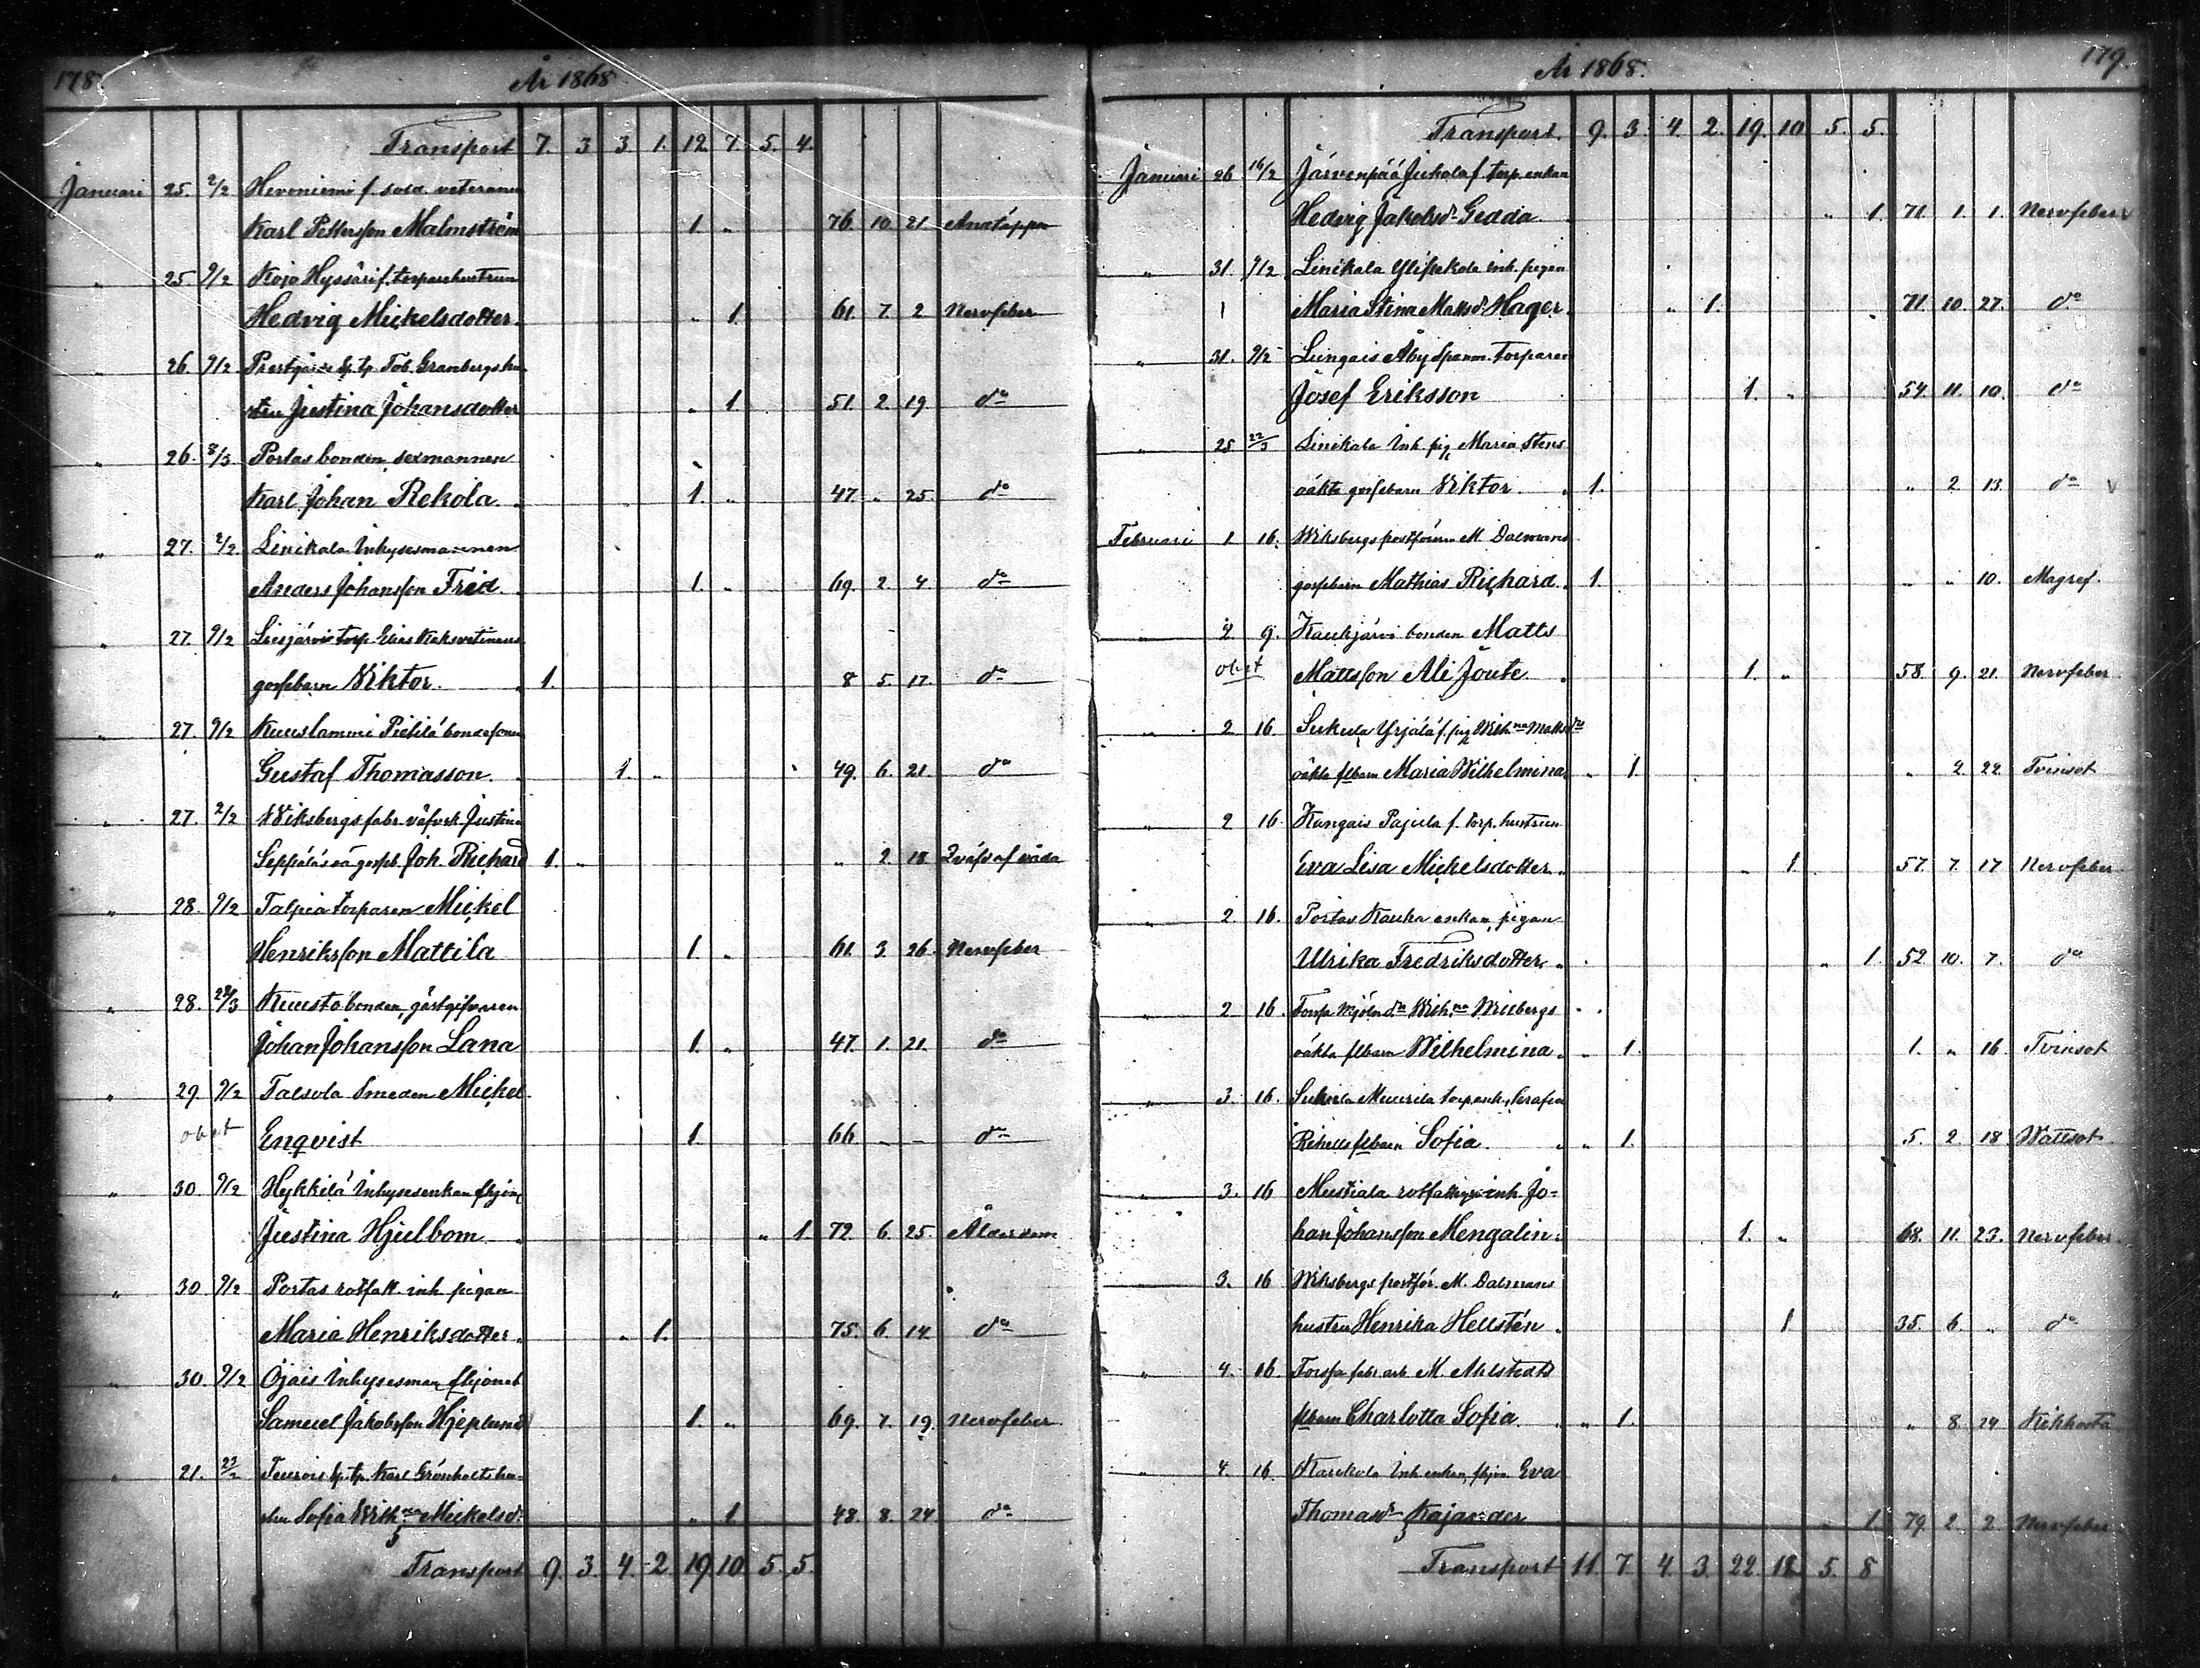 178.
År 1868.
Transport 7. 3 3. 1. 12. 7. 5. 4.
Januari 25. 2/2 Hevoniemi f. sold. veteranen
Karl Pettersson Malmström 1. „ 76. 10. 21. Andtäppa
„ 25 9/2 Kojo Hyssäri f. torparehustrun
Hedvig Mickelsdotter „ 1. 61. 7. 2 Nervfeber
„ 26. 9/2 Prestgårds Tob. Granbergs hu-
stru Justina Johansdotter „ 1. 51. 2. 19. do
„ 26. 8/3 Portas bonden, sexmannen
Karl Johan Rekola 1. „ 47. „ 25. do
„ 27. 2/2 Linikala Inhysesmannen
Anders Johansson Frid 1. „ 69. 2. 4. do
„ 27. 9/2 Liesjärvi torp. Elias
gossebarn Viktor. 1. 8 5. 17. do
„ 27. 9/2 Kuuslammi Pietilä bondesonen
Gustaf Thomasson. 1. „ 49. 6. 21. do
„ 27. 2/2 Wiksbergs fabr. Justina
Seppäläs oä gosseb. Joh. Richard 1. „ „ 2 18 Qväfd af våda
„ 28. 9/2 Talpia torparen Mickel
Henriksson Mattila 1. „ 61. 3. 26. Nervfeber
„ 28. 22/3 Kuusto bonden, gästgifvaren
Johan Johansson Lana 1. „ 47. 1. 21. do
„ 29. 9/2 Talsola Smeden Mickel
obst Enqvist 1. 66 – – do
„ 30. 9/2 Hykkilä Inhysesenkan
Justina Hjulbom „ 1. 72 6. 25. Ålderdom
„ 30. 9/2 Portas rotfatt. inh. pigan
Maria Henriksdotter „ 1. 75. 6. 14. do
„ 30. 9/2 Ojais Inhysesman
Samuel Jakobsson 1. „ 69. 7. 19. Nervfeber
„ 21. 23/2 Karl Grönholts hu-
stru Sofia Wilhna Mickelsdr „ 1. 48. 8. 24. do
Transport 9. 3. 4. 2. 19. 10. 5. 5.
179.
År 1868.
Transport. 9. 3. 4. 2. 19. 10. 5. 5.
Januari 26 16/2 Järvenpää Jukola f. torp. enkan
Hedvig Jakobsdr Gedda „ 1. 71. 1. 1. Nervfeber
„ 31. 9/2 Linikala Ylipekola inh. pigan
Maria Stina Mattsdr Hager „ 1. 71. 10. 27. do
„ 31. 9/2 Lungais Åby Spanm. torparen
Josef Eriksson 1. „ 54. 11. 10. do
25 22/3 Linikala Inh. pig. Maria Stens
oäkta gossebarn Viktor 1. „ 2 13. do
Februari 1. 16. Wiksbergs postförare M. Dalmans
gossebarn Mathias Richard. 1. „ „ 10. Magref.
„ 2. 9. Kaukjärvi bonden Matts
obst Mattsson Ali Joute 1. „ 58. 9. 21. Nervfeber
„ 2. 16. Sukula Yrjälä f. pig. Wilhna Mattsdrs
oäkta flbarn Maria Wilhelmina „ 1. „ 2 22 Tvinsot
„ 2 16. Kangais Pajula f. torp. hustrun
Eva Lisa Mickelsdotter „ 1. 57. 7. 17 Nervfeber
„ 2. 16. Portas Kauka enkan, pigan
Ulrika Fredriksdotter „ 1. 52. 10. 7. do
„ 2. 16. Wilhna Wiebergs
oäkta flbarn Wilhelmina „ 1. 1. „ 16 Tvinsot
„ 3. 16. Sukula Muurila Serafia
flbarn Sofia „ 1. 5. 2. 18 Wattsot
„ 3. 16 Mustiala rotfattige inh. Jo-
han Johansson Mengalin 1. „ 68. 11. 23. Nervfeber
„ 3. 16 Wiksbergs postför. M. Dalmans
hustru Henrika Hellstén 1 35. 6. „ do
„ 4. 16. Forssa fabr. arb. M. Ahlstedts
flbarn Charlotta Sofia „ 1. „ 8. 24 Kikhosta
„ 4. 16 Kaukola Inh. enkan Eva
Thomasdr Kajander „ 1. 79. 2. 2 Nervfeber
Transport 11. 7. 4. 3. 22. 12. 5. 8